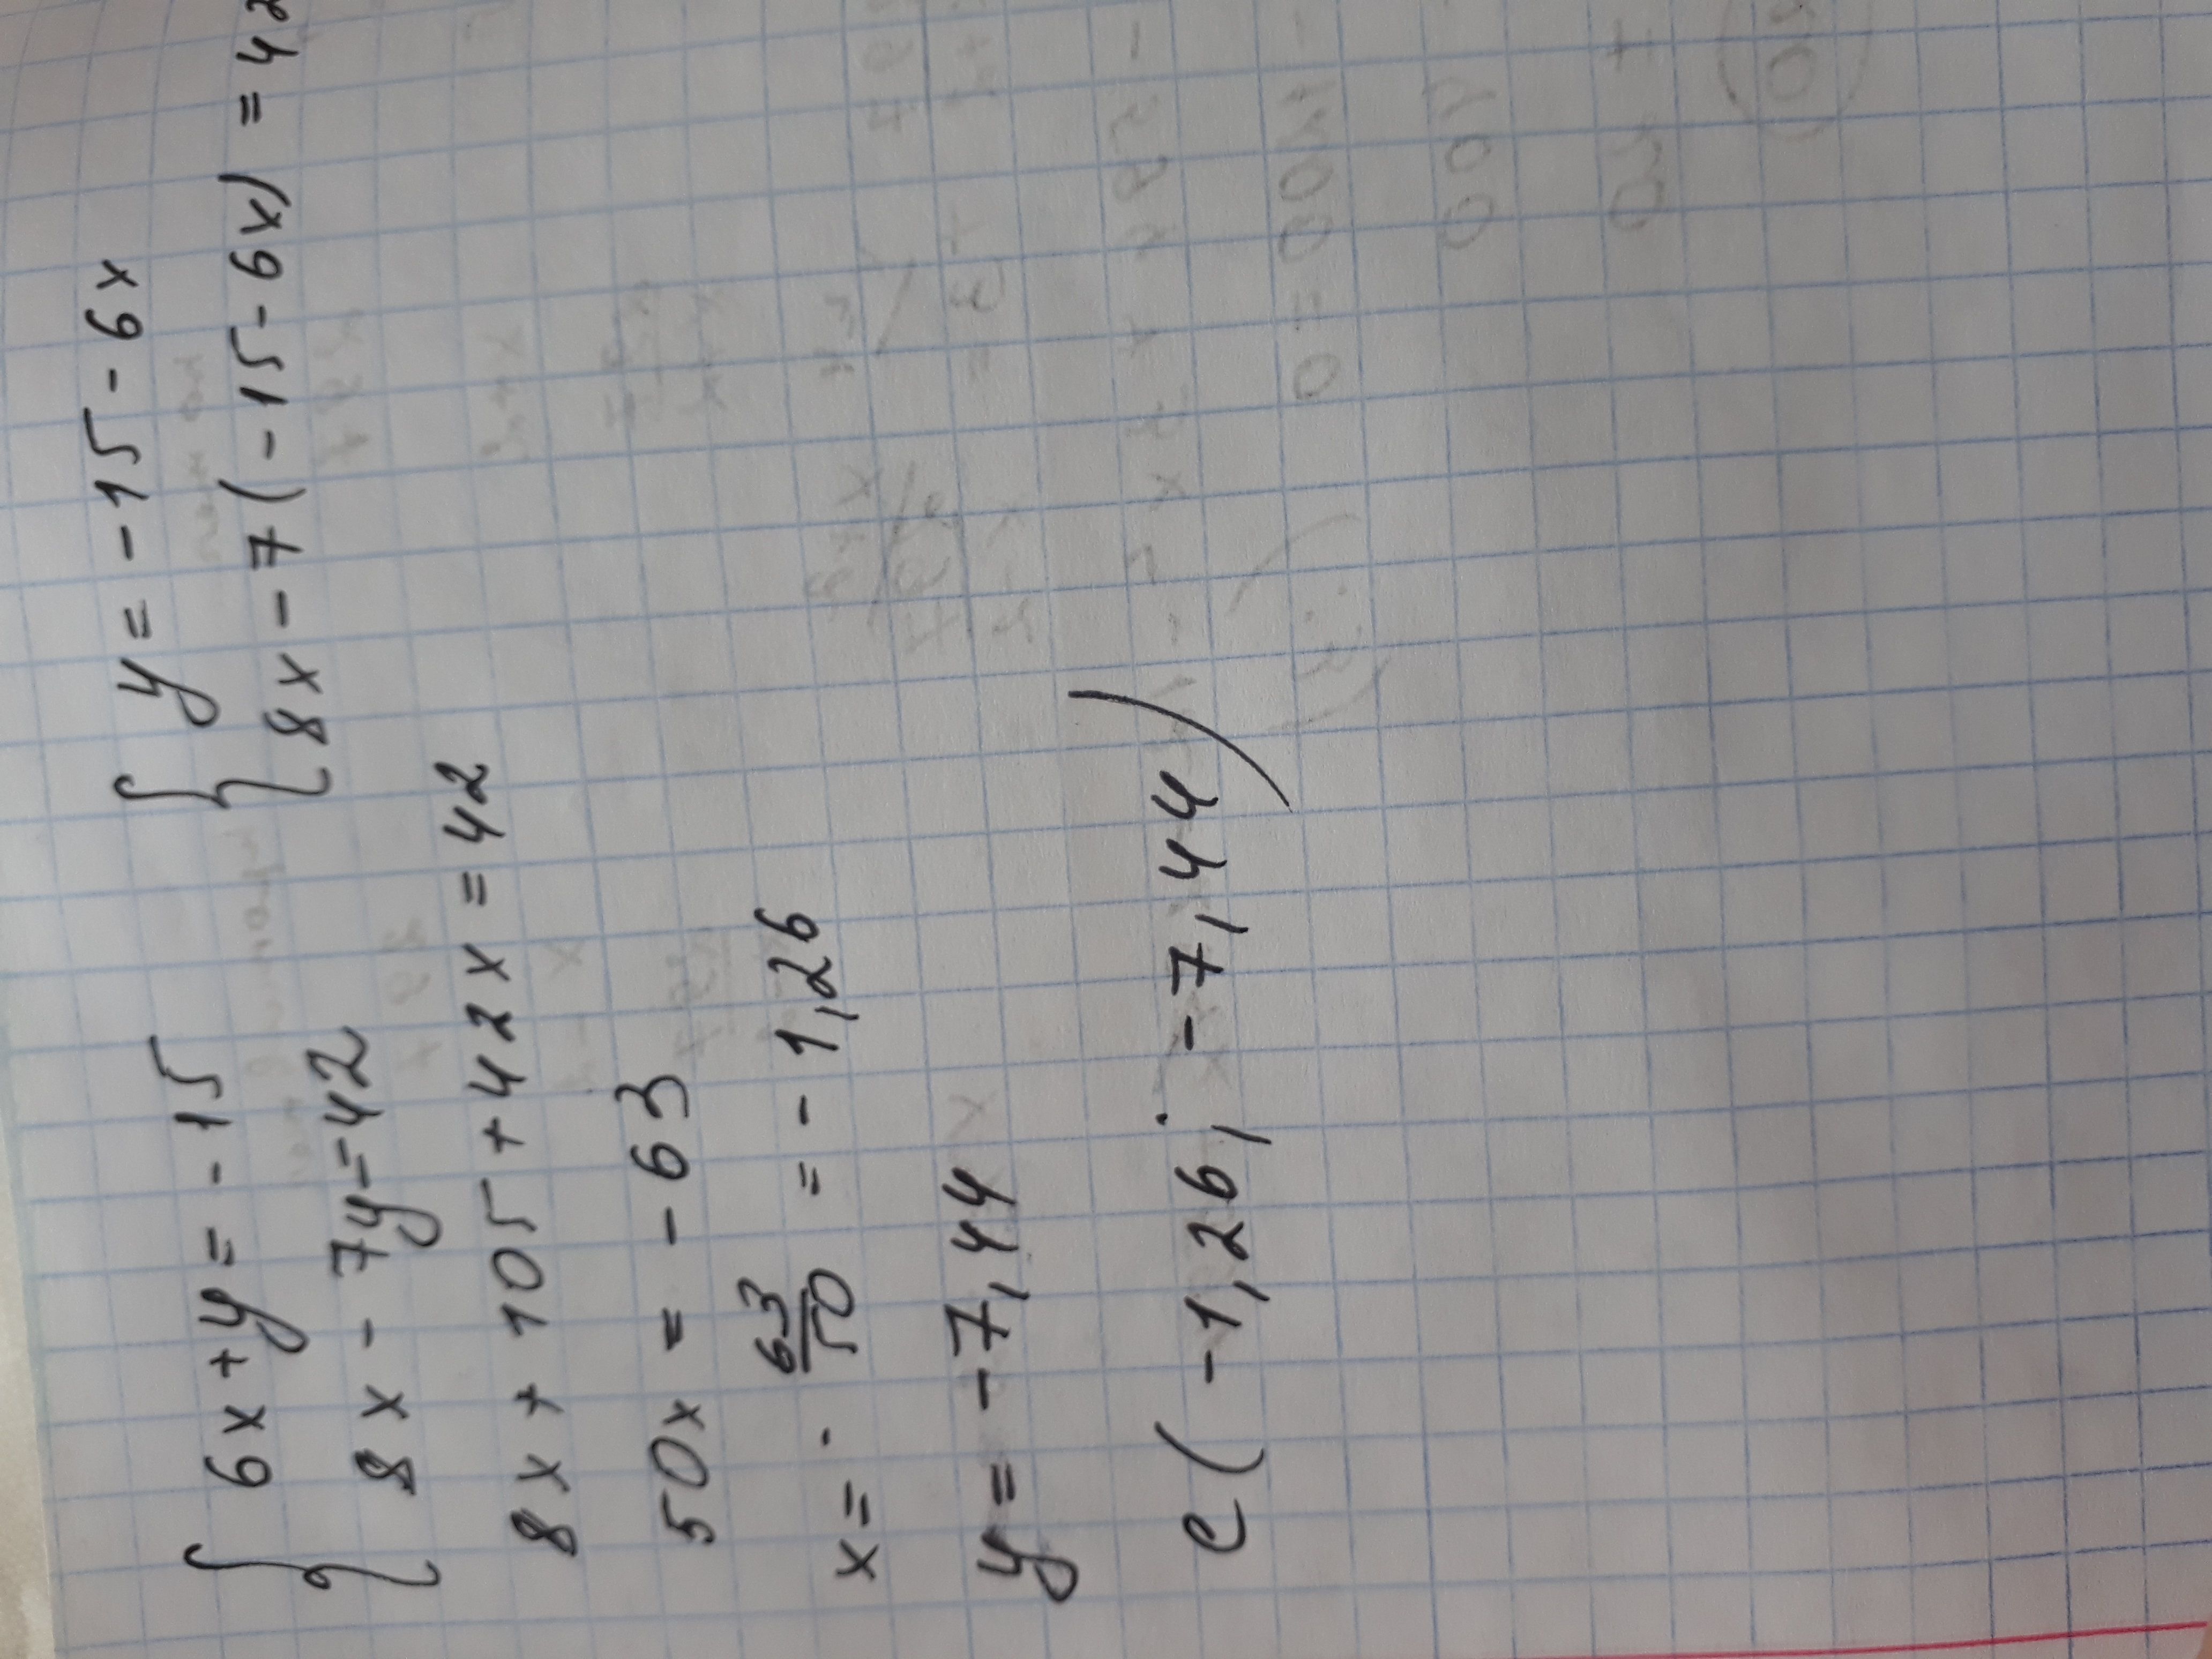 { 6x + y = - 15 { y = - 15 - 6x
8x - 7y = 42 8x - 7(- 15 - 6x) = 42
8x + 105 + 42x = 42
50x = - 63
x = - 63/50 = - 1,26
y = - 7,44
c ( - 1,26 ; - 7,44 )